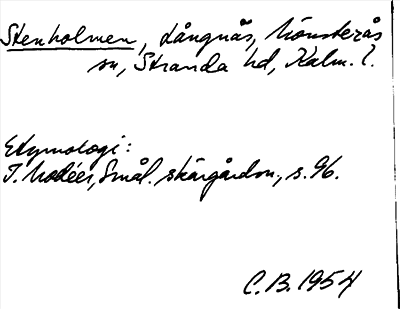 Stenholmen, Långnäs, Mönsterås
sn, Stranda hd, Kalm. l.
Etymologi:
I. Modéer, Smål. skärgårdsn., s. 96.
C.B. 1954